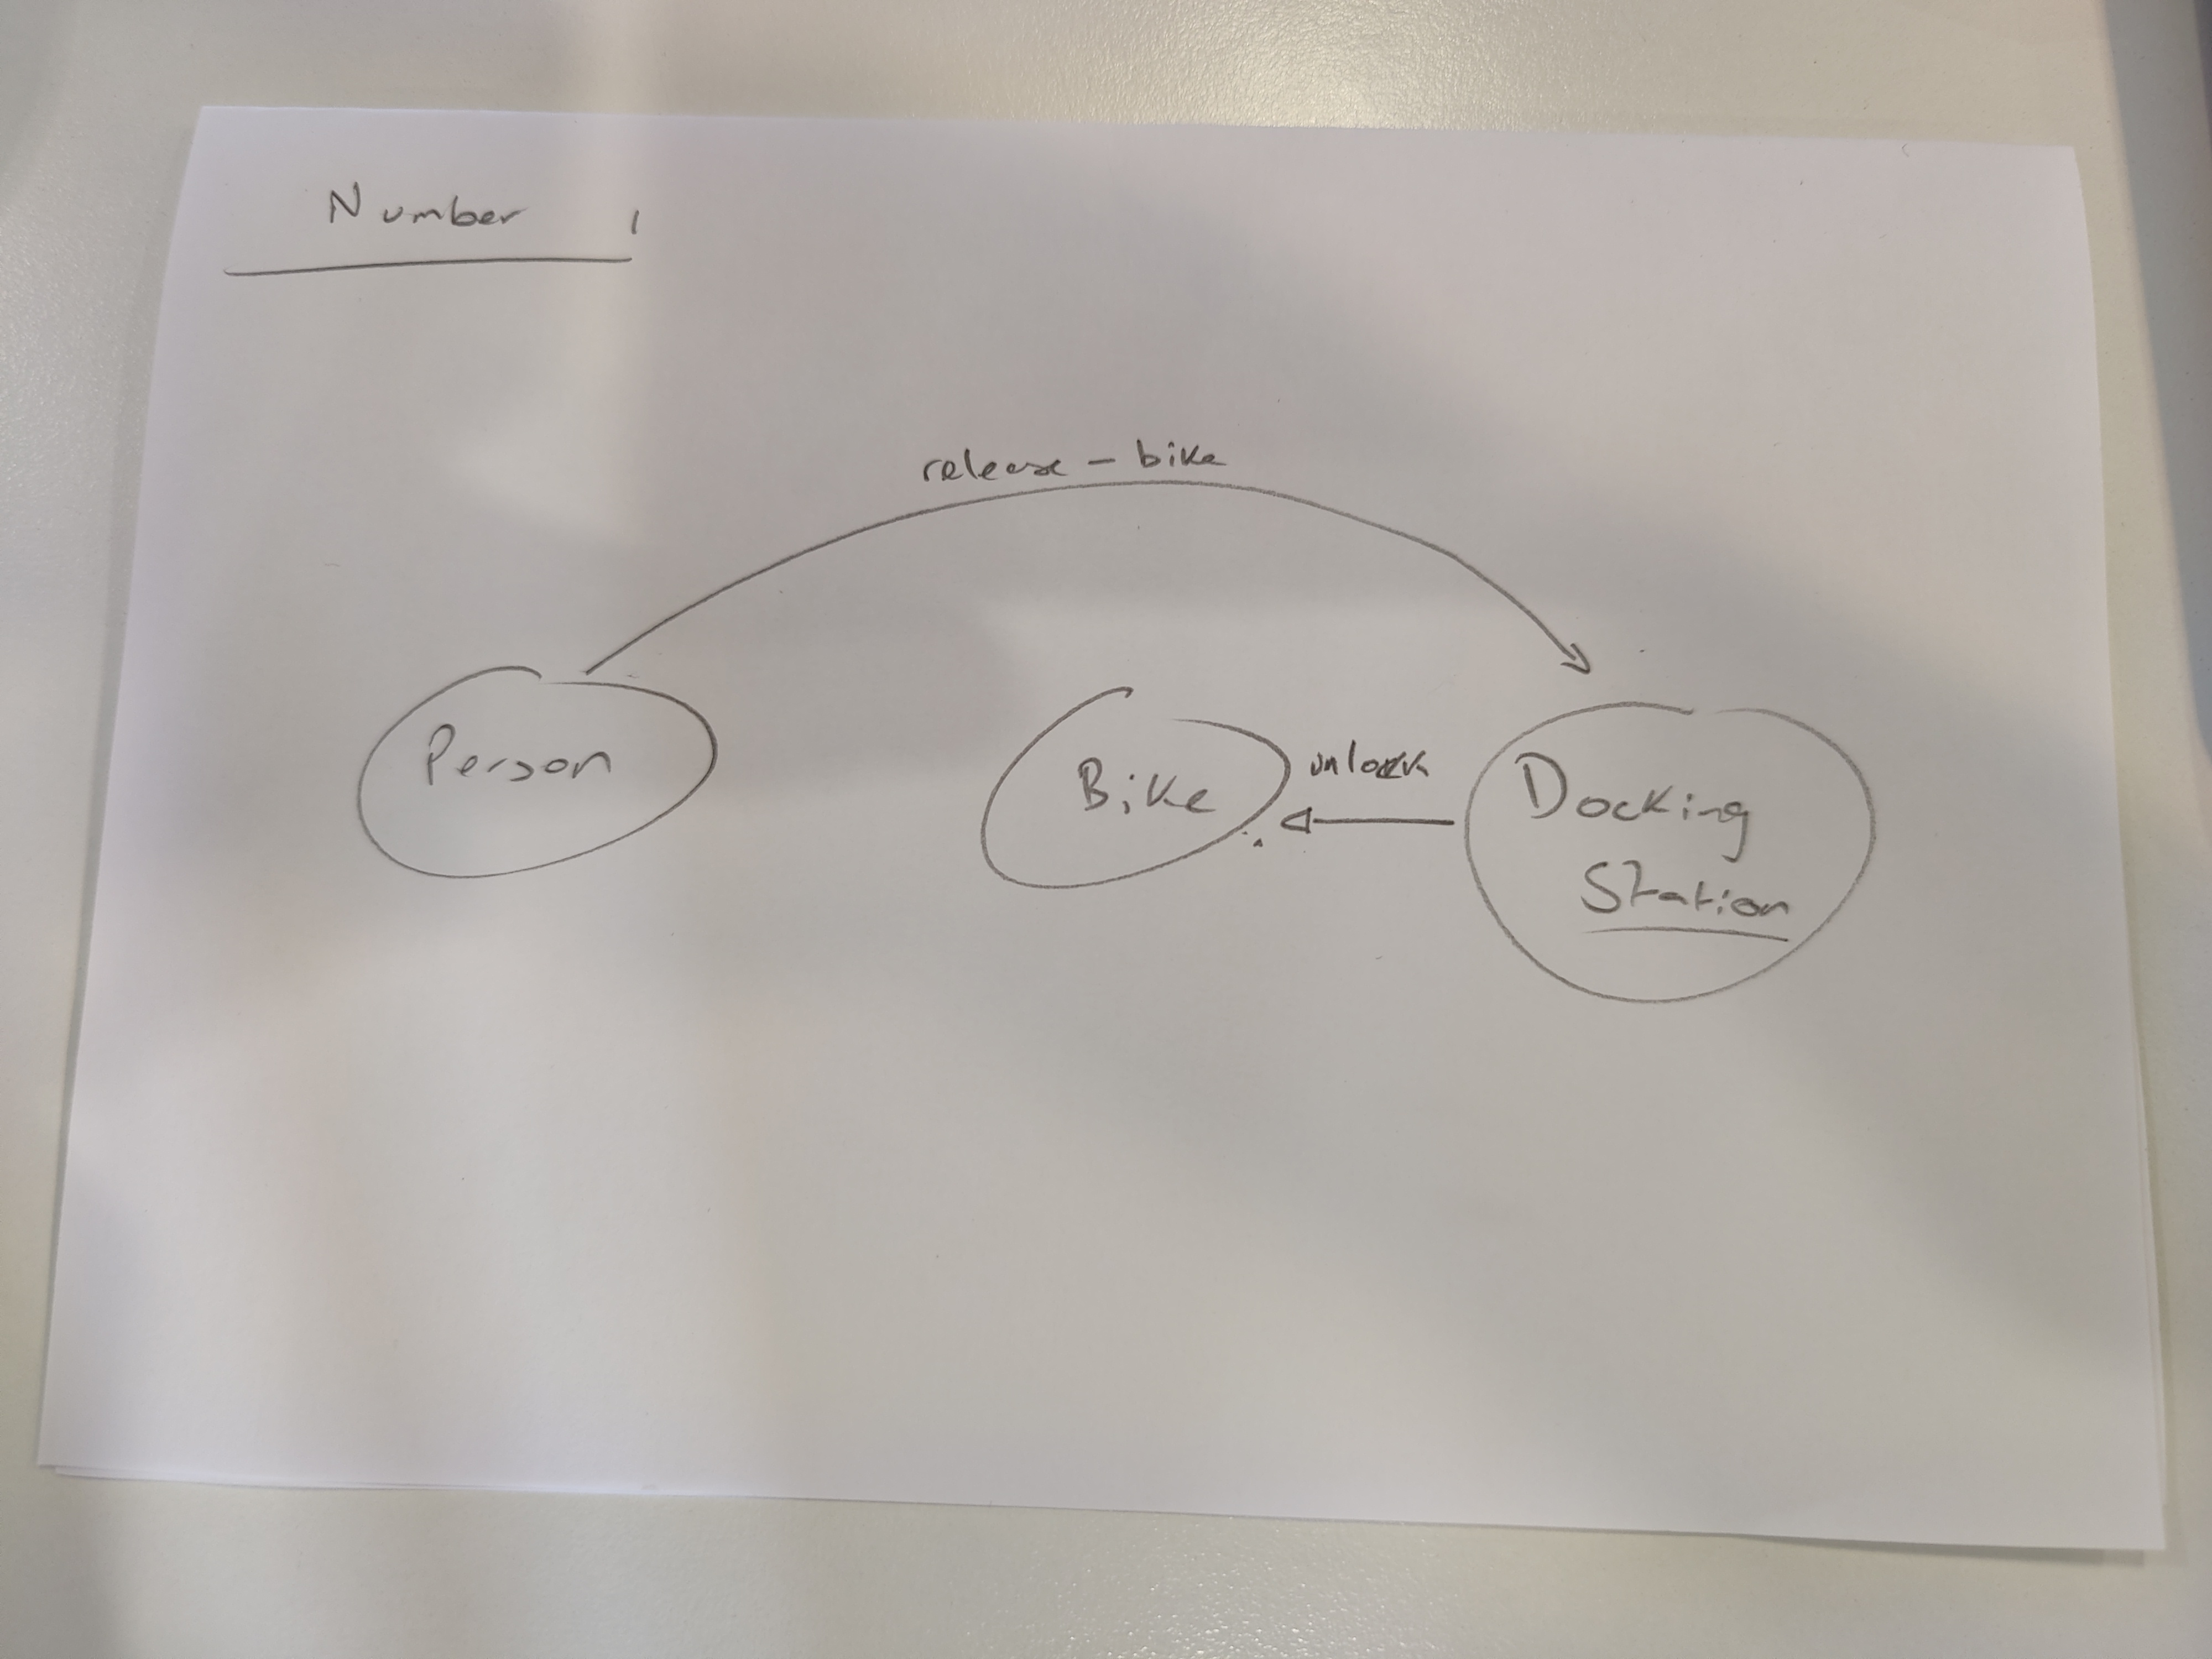 Number 1
release - bike
Person
Bike
unlock
Docking
Station